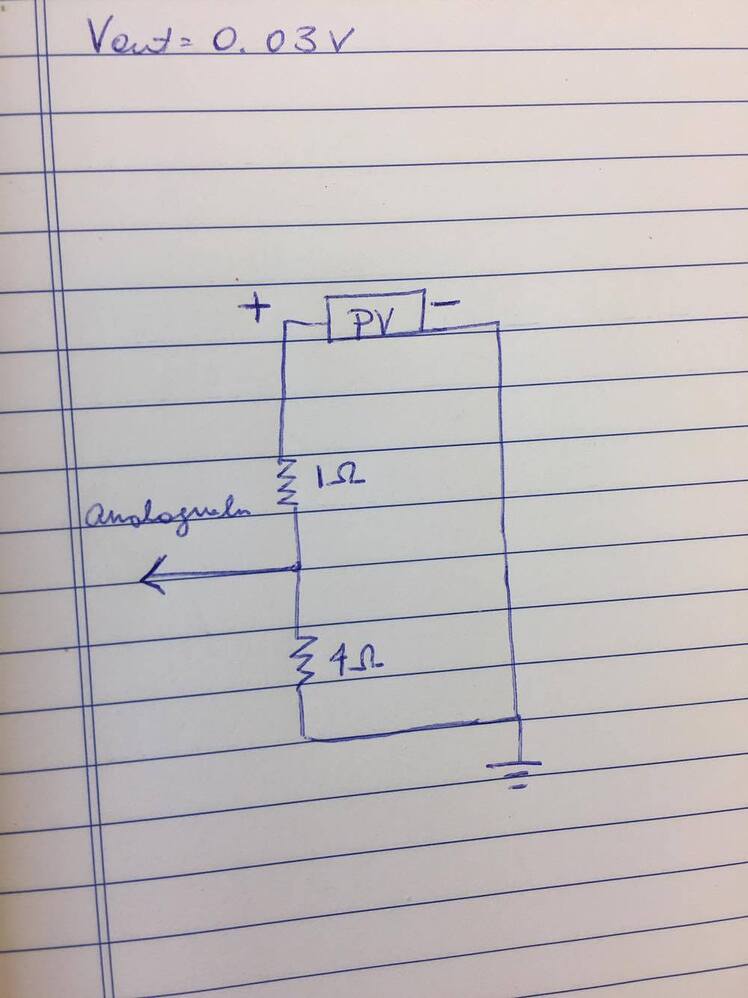 Vout = 0.03V
+ PV -
1Ω
analogueIn
4Ω